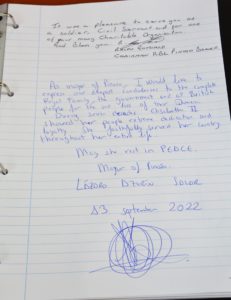 It was a pleasure to serve you as
a soldier, Civil Servant and for one
of your many Charitable Organisation
God bless you
CHAIRMAN RBL
As mayor of Pinoso, I would like to
express my deepest condolences to the complete
Royal Family, the government and all British
people for the sad loss of their Queen.
During seven decades Elizabeth II
showed her people extreme dedication and
loyalty. She faithfully served her country
throughout her entire life.
May she rest in PEACE.
Mayor of Pinoso.
LÁZARO AZORÍN SALAR
13 september 2022